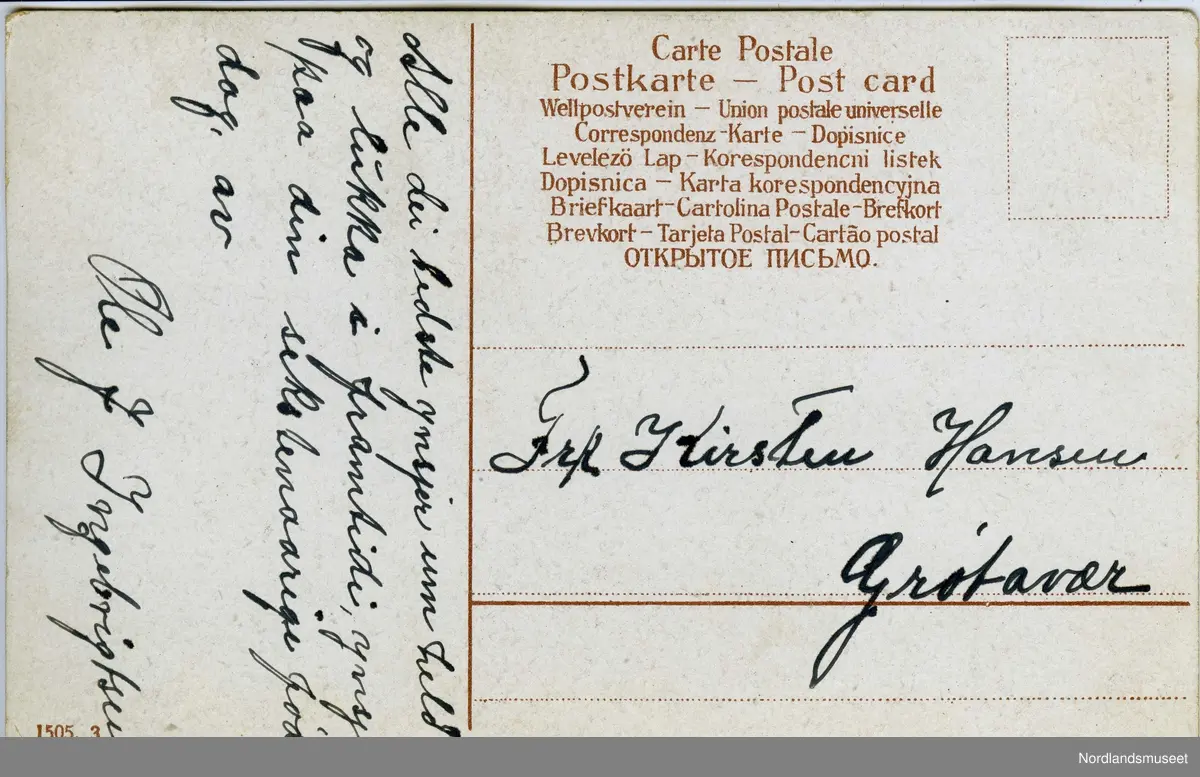 Alle dei bedste ynsjer um held
og lukka i framtidi, ynsj
paa din sekstenaarige fød
dag, av
Ole J Ingebrigtsen
1505 3
Carte Postale
Postkarte — Post card
Weltpostverein — Union postale universelle
Correspondenz-Karte — Dopisnice
Levelezö Lap — Korespondencni listek
Dopisnica — Karta korespondencyjna
Briefkaart-Cartolina Postale-Brefkort
Brevkort — Tarjeta Postal-Cartão postal
ОТКРЫТОЕ ПИСЬМО.
Frk Kirsten Hansen
Grøtavær
Nordlandsmuseet